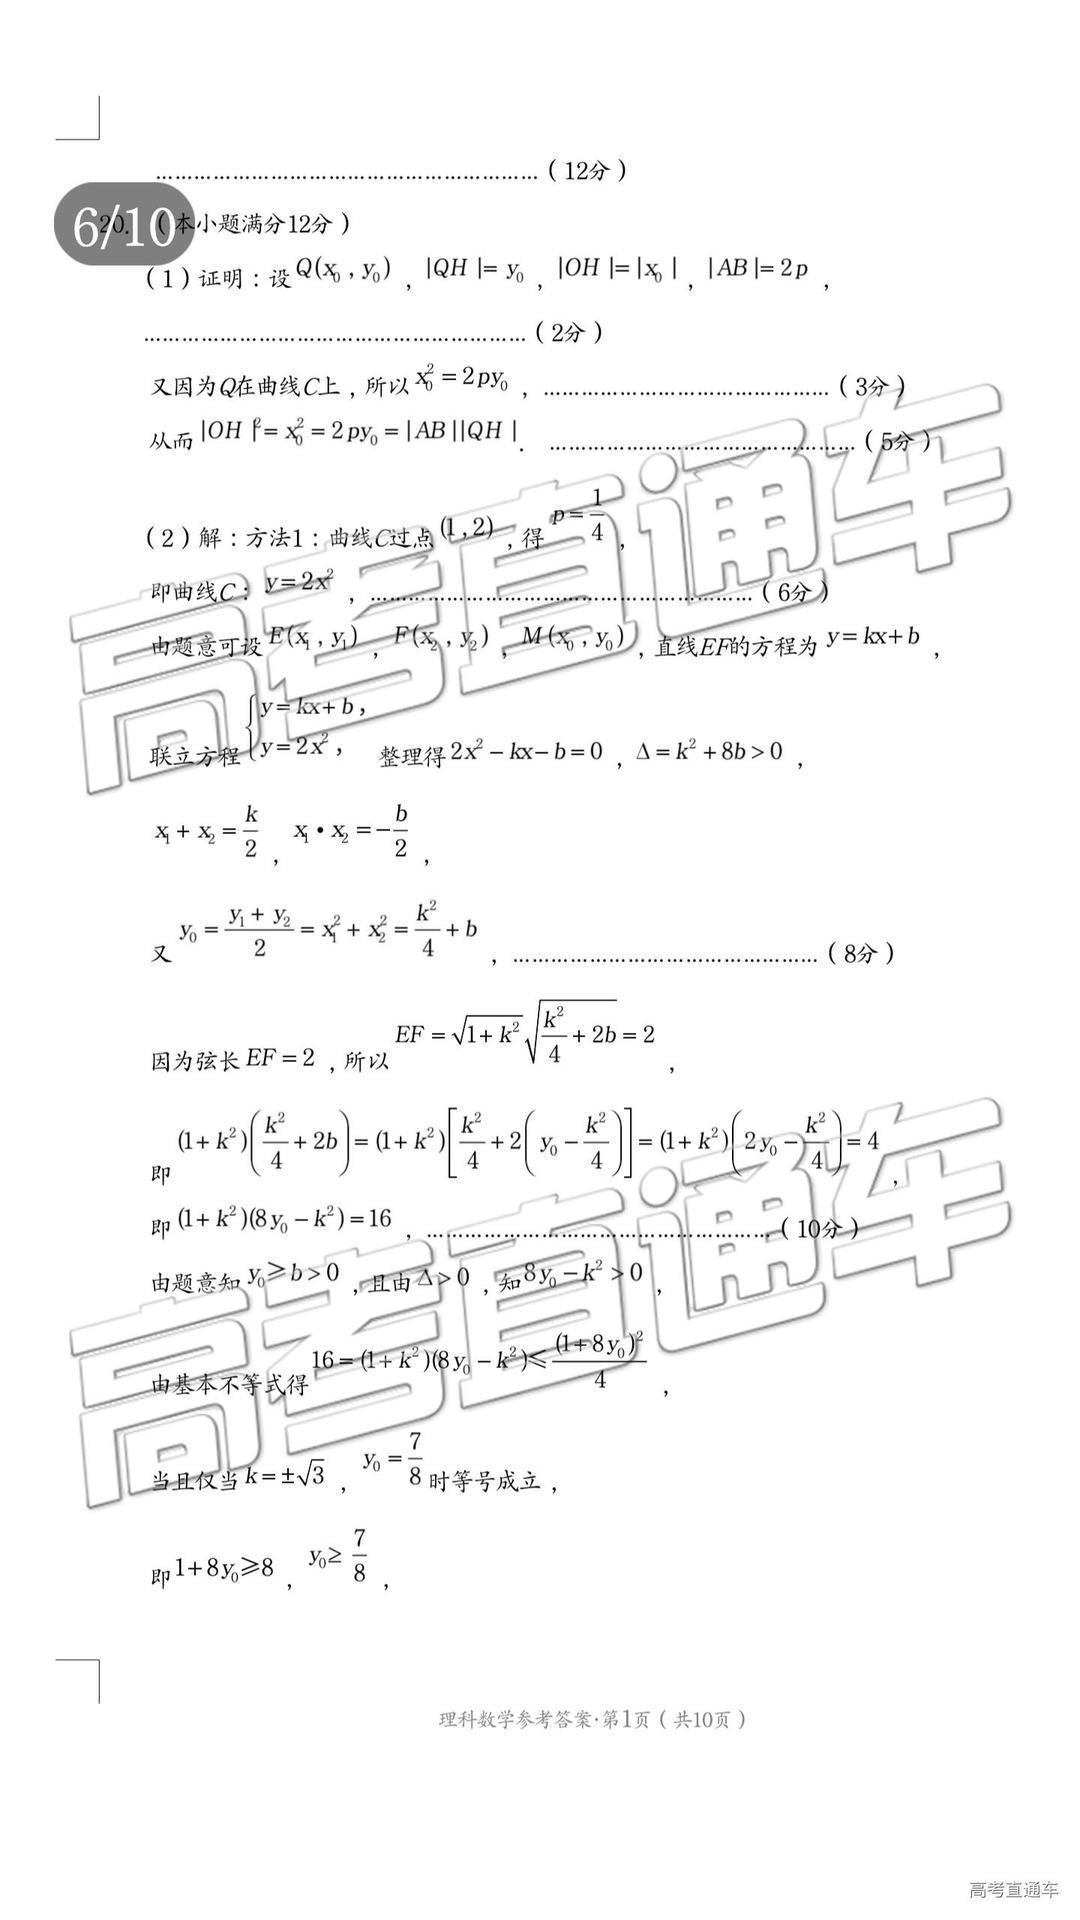 ………………………………………………………（12分）
6/10
20.（本小题满分12分）
（1）证明：设Q(x₀，y₀)，|QH|=y₀，|OH|=|x₀|，|AB|=2p，
………………………………………………………（2分）
又因为Q在曲线C上，所以x₀²=2py₀，…………………………………………（3分）
从而|OH|²=x₀²=2py₀=|AB||QH|．……………………………………………（5分）
（2）解：方法1：曲线C过点(1,2)，得p=1/4，
即曲线C：y=2x²，………………………………………………………（6分）
由题意可设E(x₁，y₁)，F(x₂，y₂)，M(x₀，y₀)，直线EF的方程为y=kx+b，
联立方程{y=kx+b，y=2x²，整理得2x²−kx−b=0，Δ=k²+8b>0，
x₁+x₂=k/2，x₁•x₂=−b/2，
又y₀=(y₁+y₂)/2=x₁²+x₂²=k²/4+b，……………………………………………（8分）
因为弦长EF=2，所以EF=√(1+k²)√(k²/4+2b)=2，
即(1+k²)(k²/4+2b)=(1+k²)[k²/4+2(y₀−k²/4)]=(1+k²)(2y₀−k²/4)=4，
即(1+k²)(8y₀−k²)=16，…………………………………………………（10分）
由题意知y₀≥b>0，且由Δ>0，知8y₀−k²>0，
由基本不等式得16=(1+k²)(8y₀−k²)≤(1+8y₀)²/4，
当且仅当k=±√3，y₀=7/8时等号成立，
即1+8y₀≥8，y₀≥7/8，
理科数学参考答案·第1页（共10页）
高考直通车
高考直通车
高考直通车